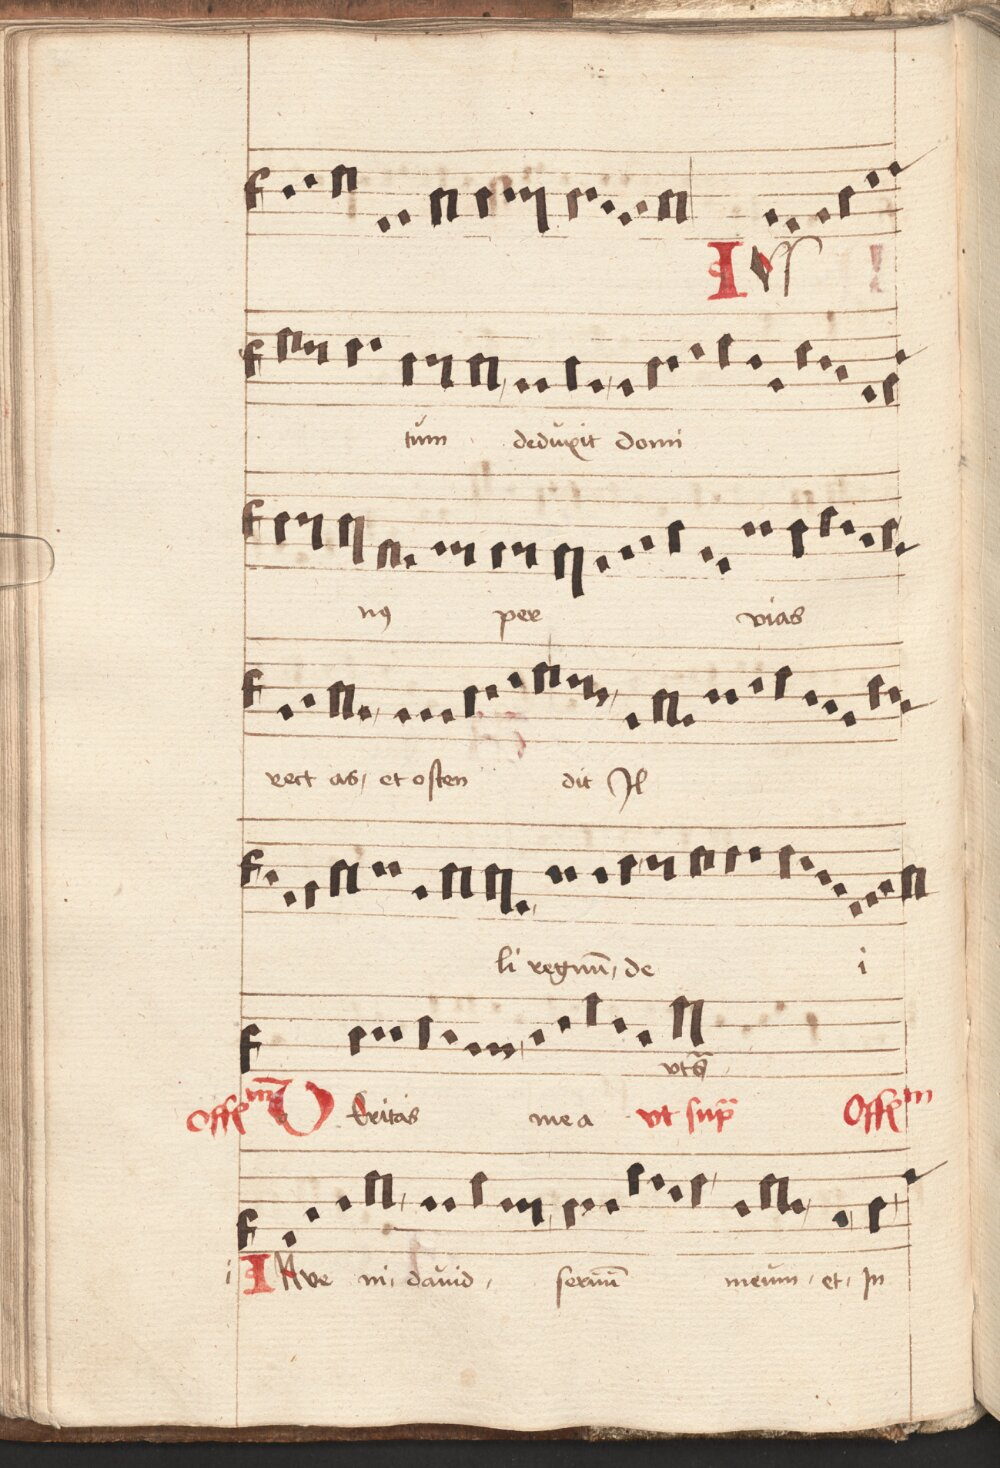 Ius
tum deduxit domi
n9 per vias
rect as, et osten dit Il
li regnū, de i
vts
Offm V Eritas mea vt sup Offm
i INve ni, david, servū meum, et, In